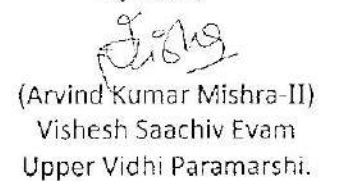 (Arvind Kumar Mishra-II)
Vishesh Saachiv Evam
Upper Vidhi Paramarshi.